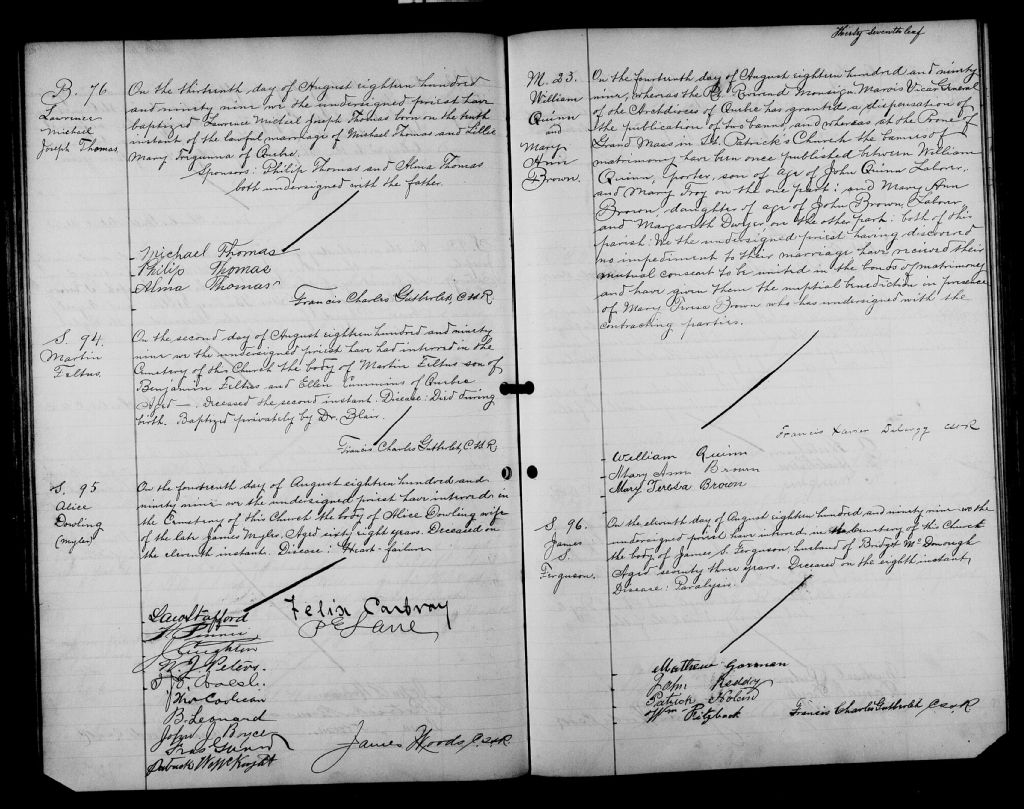 B. 76
Lawrence
Michael
Joseph Thomas.
On the thirteenth day of August eighteen hundred
and ninety nine we the undersigned priest have
baptized Lawrence Michael Joseph Thomas born on the tenth
instant of the lawful marriage of Michael Thomas and Lillie
Mary of Quebec.
Sponsors: Philip Thomas and Alma Thomas
both undersigned with the father.
Michael Thomas
Philip Thomas
Alma Thomas
Francis Charles C.SS.R.
S. 94.
Martin
Feltus.
On the second day of August eighteen hundred and ninety
nine we the undersigned priest have had interred in the
Cemetery of this Church the body of Martin Feltus son of
Benjamin Feltus and Ellen Cummins of Quebec
Aged —. Deceased the second instant. Disease: Died during
birth. Baptized privately by Dr. Blair.
Francis Charles C.SS.R.
S. 95
Alice
Dowling
(Myles)
On the fourteenth day of August eighteen hundred and
ninety nine we the undersigned priest have interred in
the Cemetery of this Church the body of Alice Dowling wife
of the late James Myles. Aged sixty eight years. Deceased on
the eleventh instant. Disease: Heart-failure
Stafford
Felix Carbray
J Creighton
W. J. Peters.
Thos Cochran
B. Leonard
John J Boyce
James Woods, C.SS.R.
Thirty-seventh leaf
M. 23.
William
Quinn
and
Mary
Ann
Brown.
On the fourteenth day of August eighteen hundred and ninety
nine, whereas the Rt. Reverend Monsignor Marois Vicar General
of the Archdiocese of Quebec has granted a dispensation of
the publication of two banns, and whereas at the Prone of
Grand Mass in St. Patrick's Church the banns of
matrimony have been once published between William
Quinn, porter, son of age of John Quinn Laborer,
and Mary Troy on the one part: and Mary Ann
Brown, daughter of age of John Brown, Laborer
and Margareth Dwyer on the other part: both of this
parish: We the undersigned priest having discovered
no impediment to their marriage have received their
mutual consent to be united in the bonds of matrimony
and have given them the nuptial benediction in presence
of Mary Teresa Brown who has undersigned with the
contracting parties.
Francis Xavier C.SS.R
William Quinn
Mary Ann Brown
Mary Teresa Brown
S. 96.
James
S.
Ferguson.
On the eleventh day of August eighteen hundred and ninety nine we the
undersigned priest have interred in the cemetery of this Church
the body of James S. Ferguson husband of Bridget McDonough
Aged seventy three years. Deceased on the eighth instant,
Disease: Paralysis.
Mathew Gorman
John Reddy
Patrick
Wm
Francis Charles C.SS.R